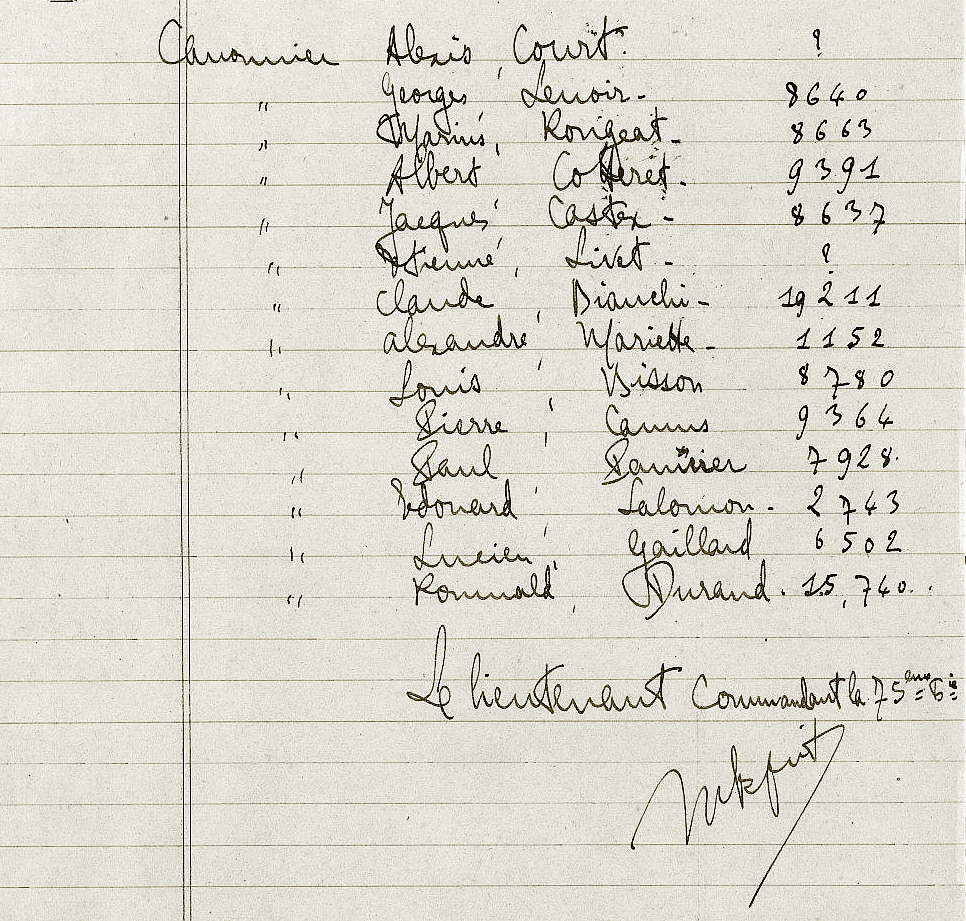 Canonnier Alexis, Court. ?
" Georges, Lenoir - 8640
" Marius, Rougeat - 8663
" Albert Cotteret. 9391
" Jacques, Castex - 8637
" Etienne, Livet - ?
" Claude, Bianchi - 19211
" Alexandre, Mariette - 1152
" Louis, Bisson 8780
" Pierre, Camus 9364
" Paul 7928.
" Edouard, Salomon - 2743
" Lucien, Gaillard 6502
" Romuald, Durand. 15,740.
Le lieutenant Commandant la 75eme Bie